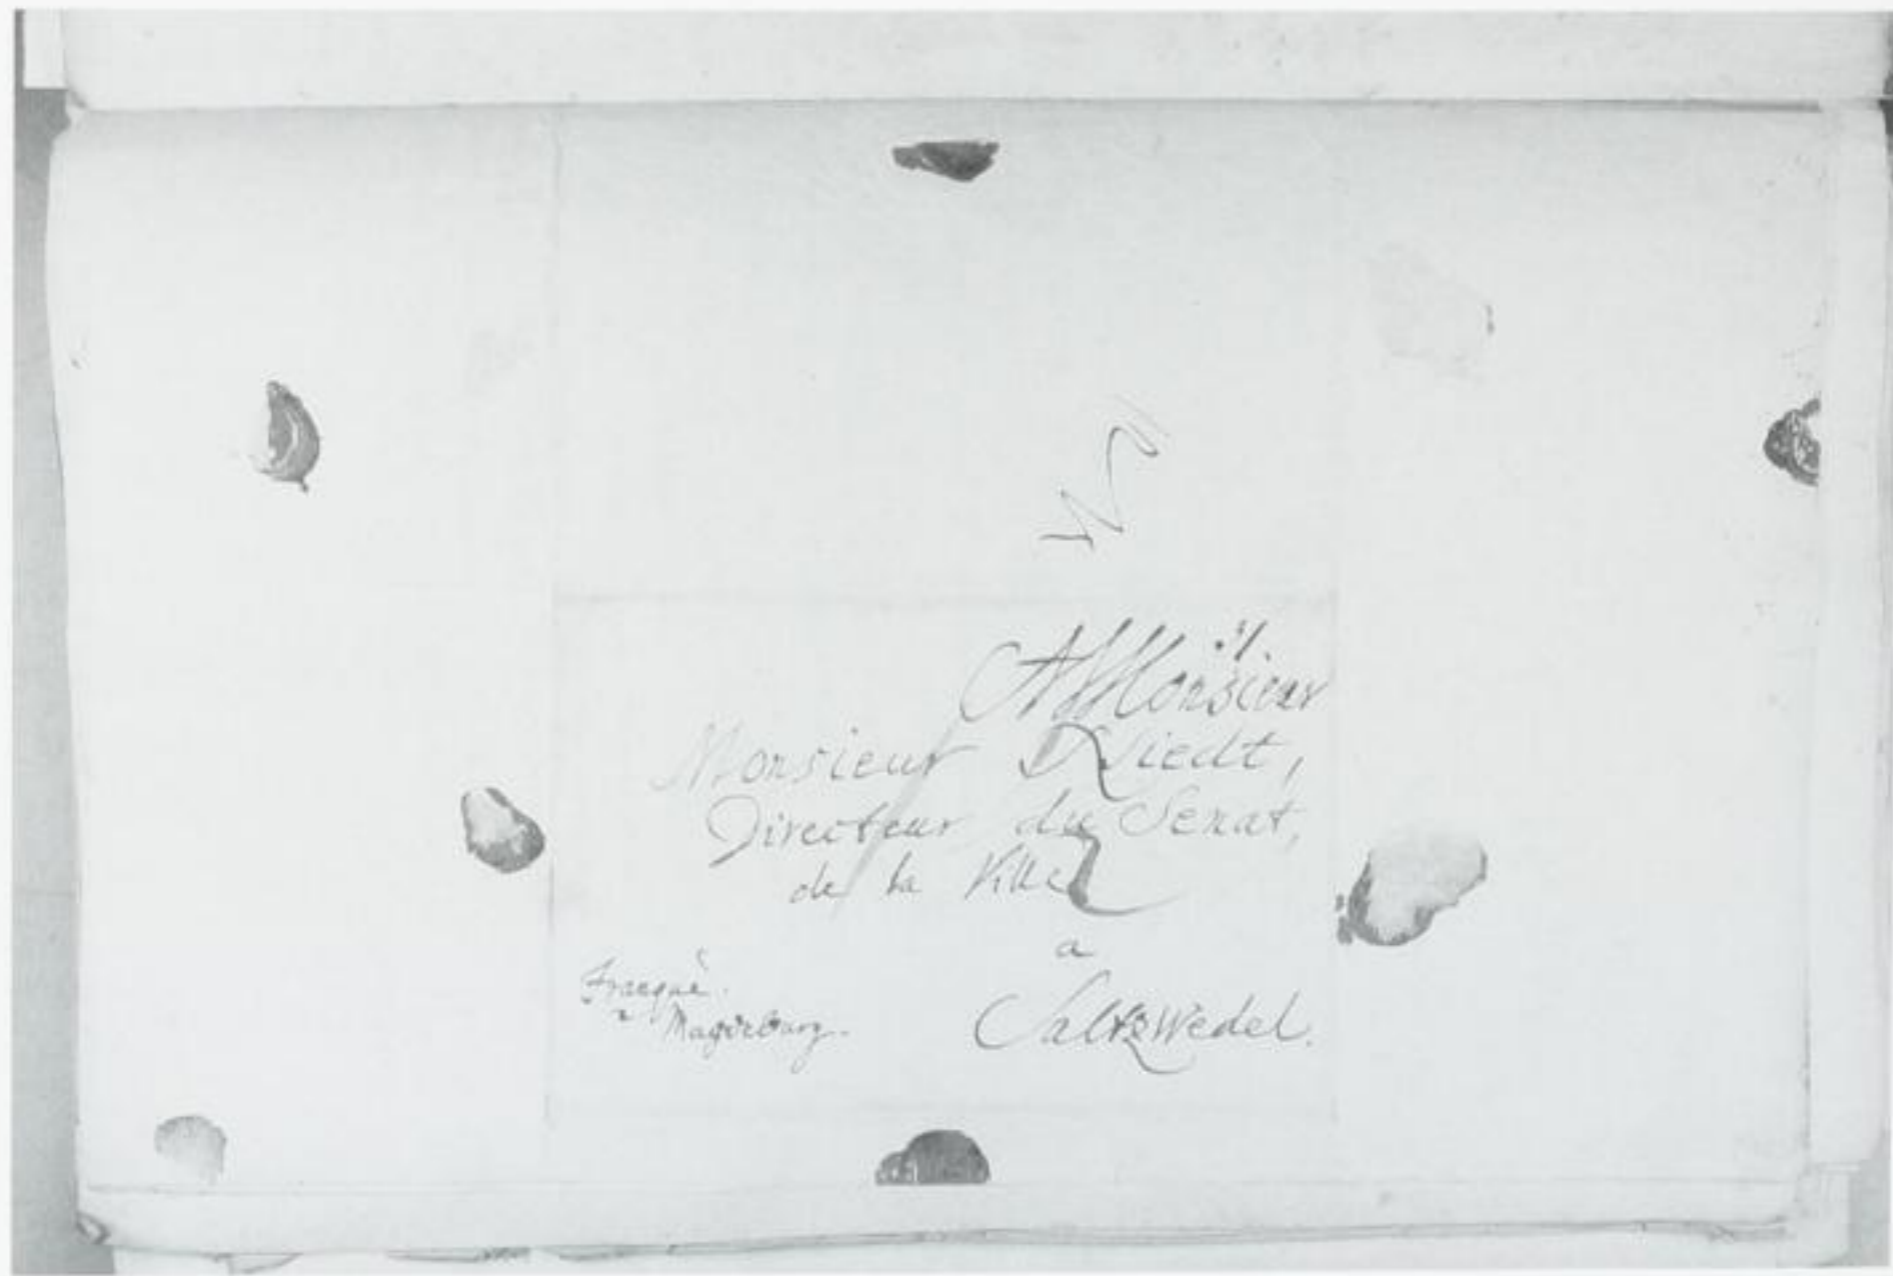 A Monsieur
Monsieur Niedt,
Directeur du Senat,
de la Ville
a
Saltzwedel.
Magdeburg.